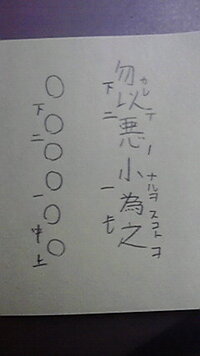 カレ テ ノ ナルヲ スコト ヲ
勿以悪小為之
下 二 一
○○○○○○
下 二 一 中 上